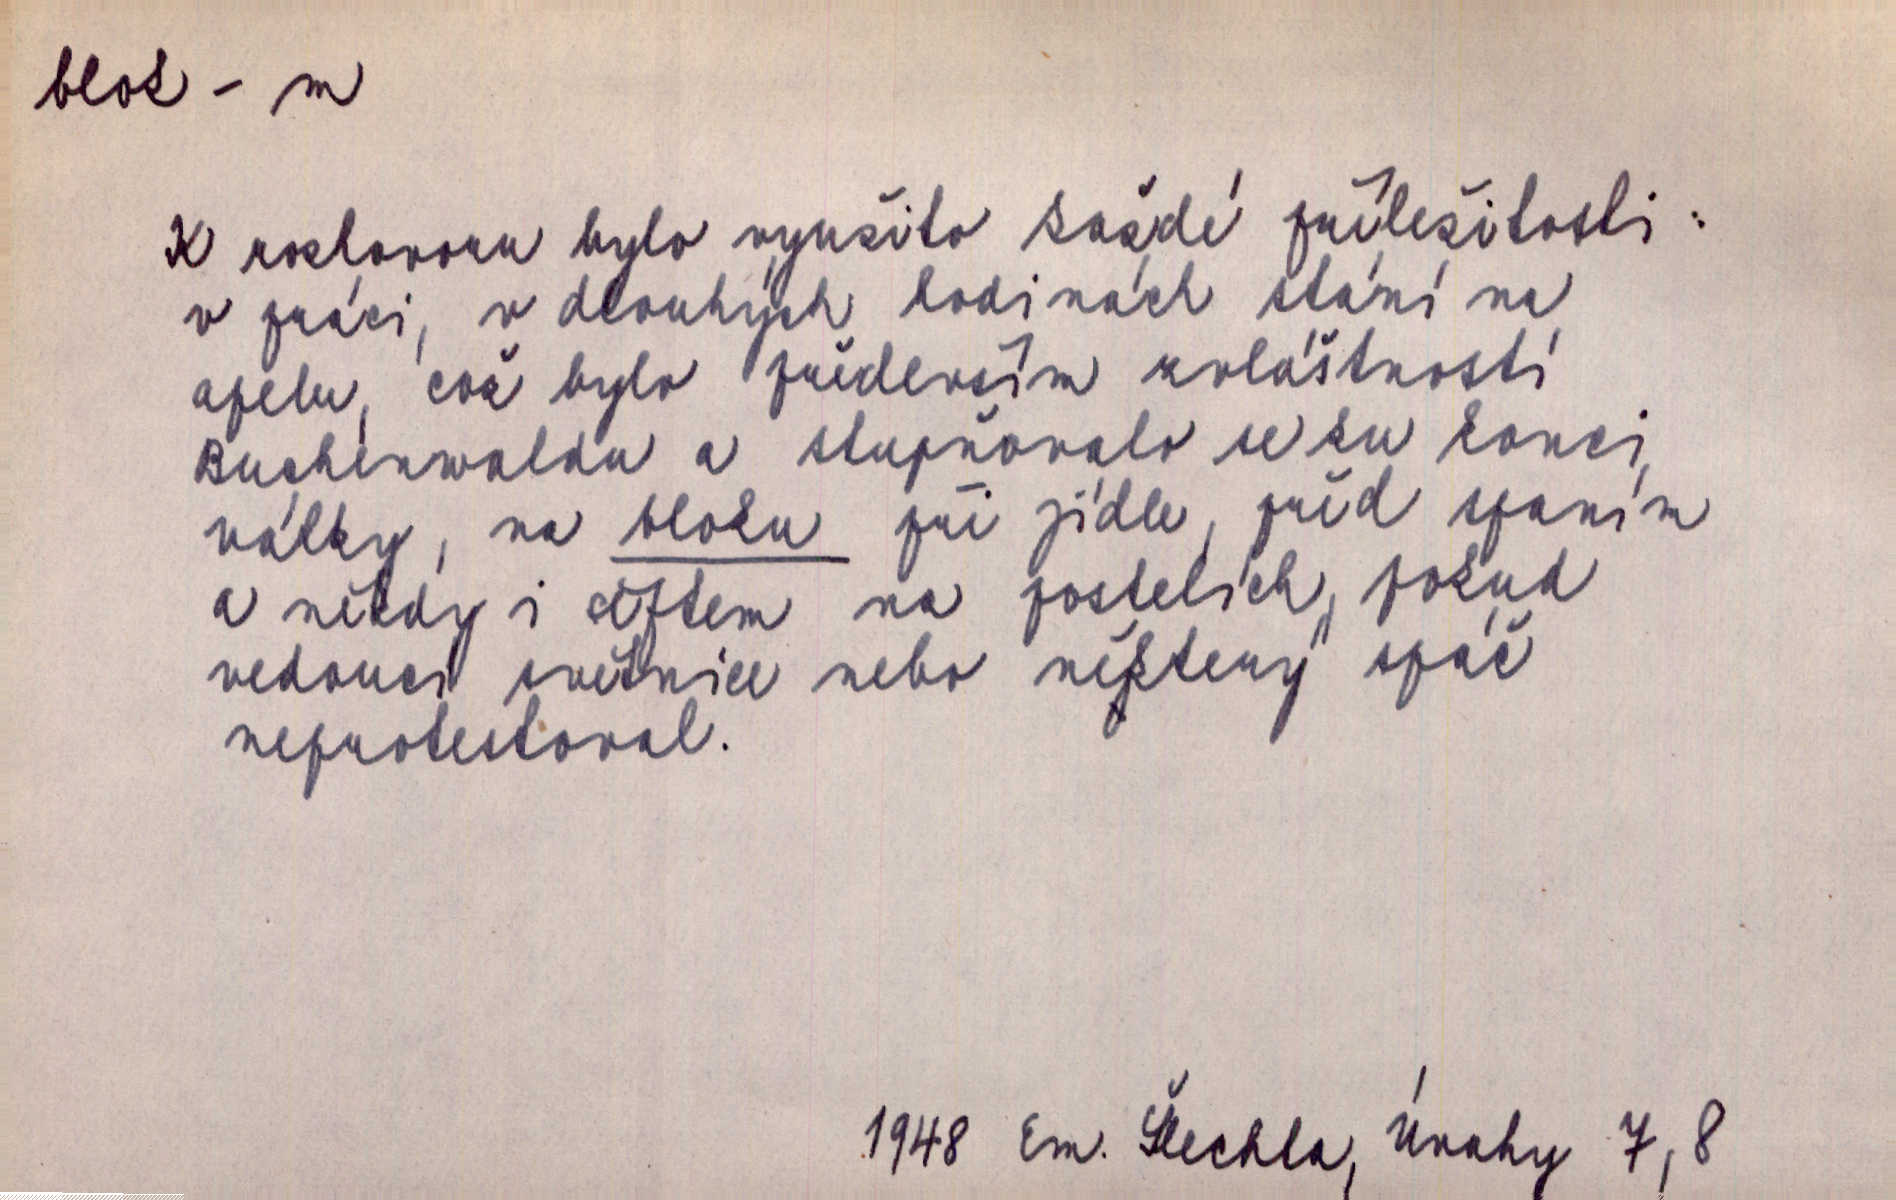 blok - m
K rozhovoru bylo využito každé příležitosti:
v práci, v dlouhých hodinách stání na
apelu, což bylo především zvláštností
Buchenwaldu a stupňovalo se ku konci
války, na bloku při jídle, před spaním
a někdy i šeftem na postelích, pokud
vedoucí světnice nebo některý spáč
neprotestoval.
1948 Em. Šlechta, Úvahy 7, 8